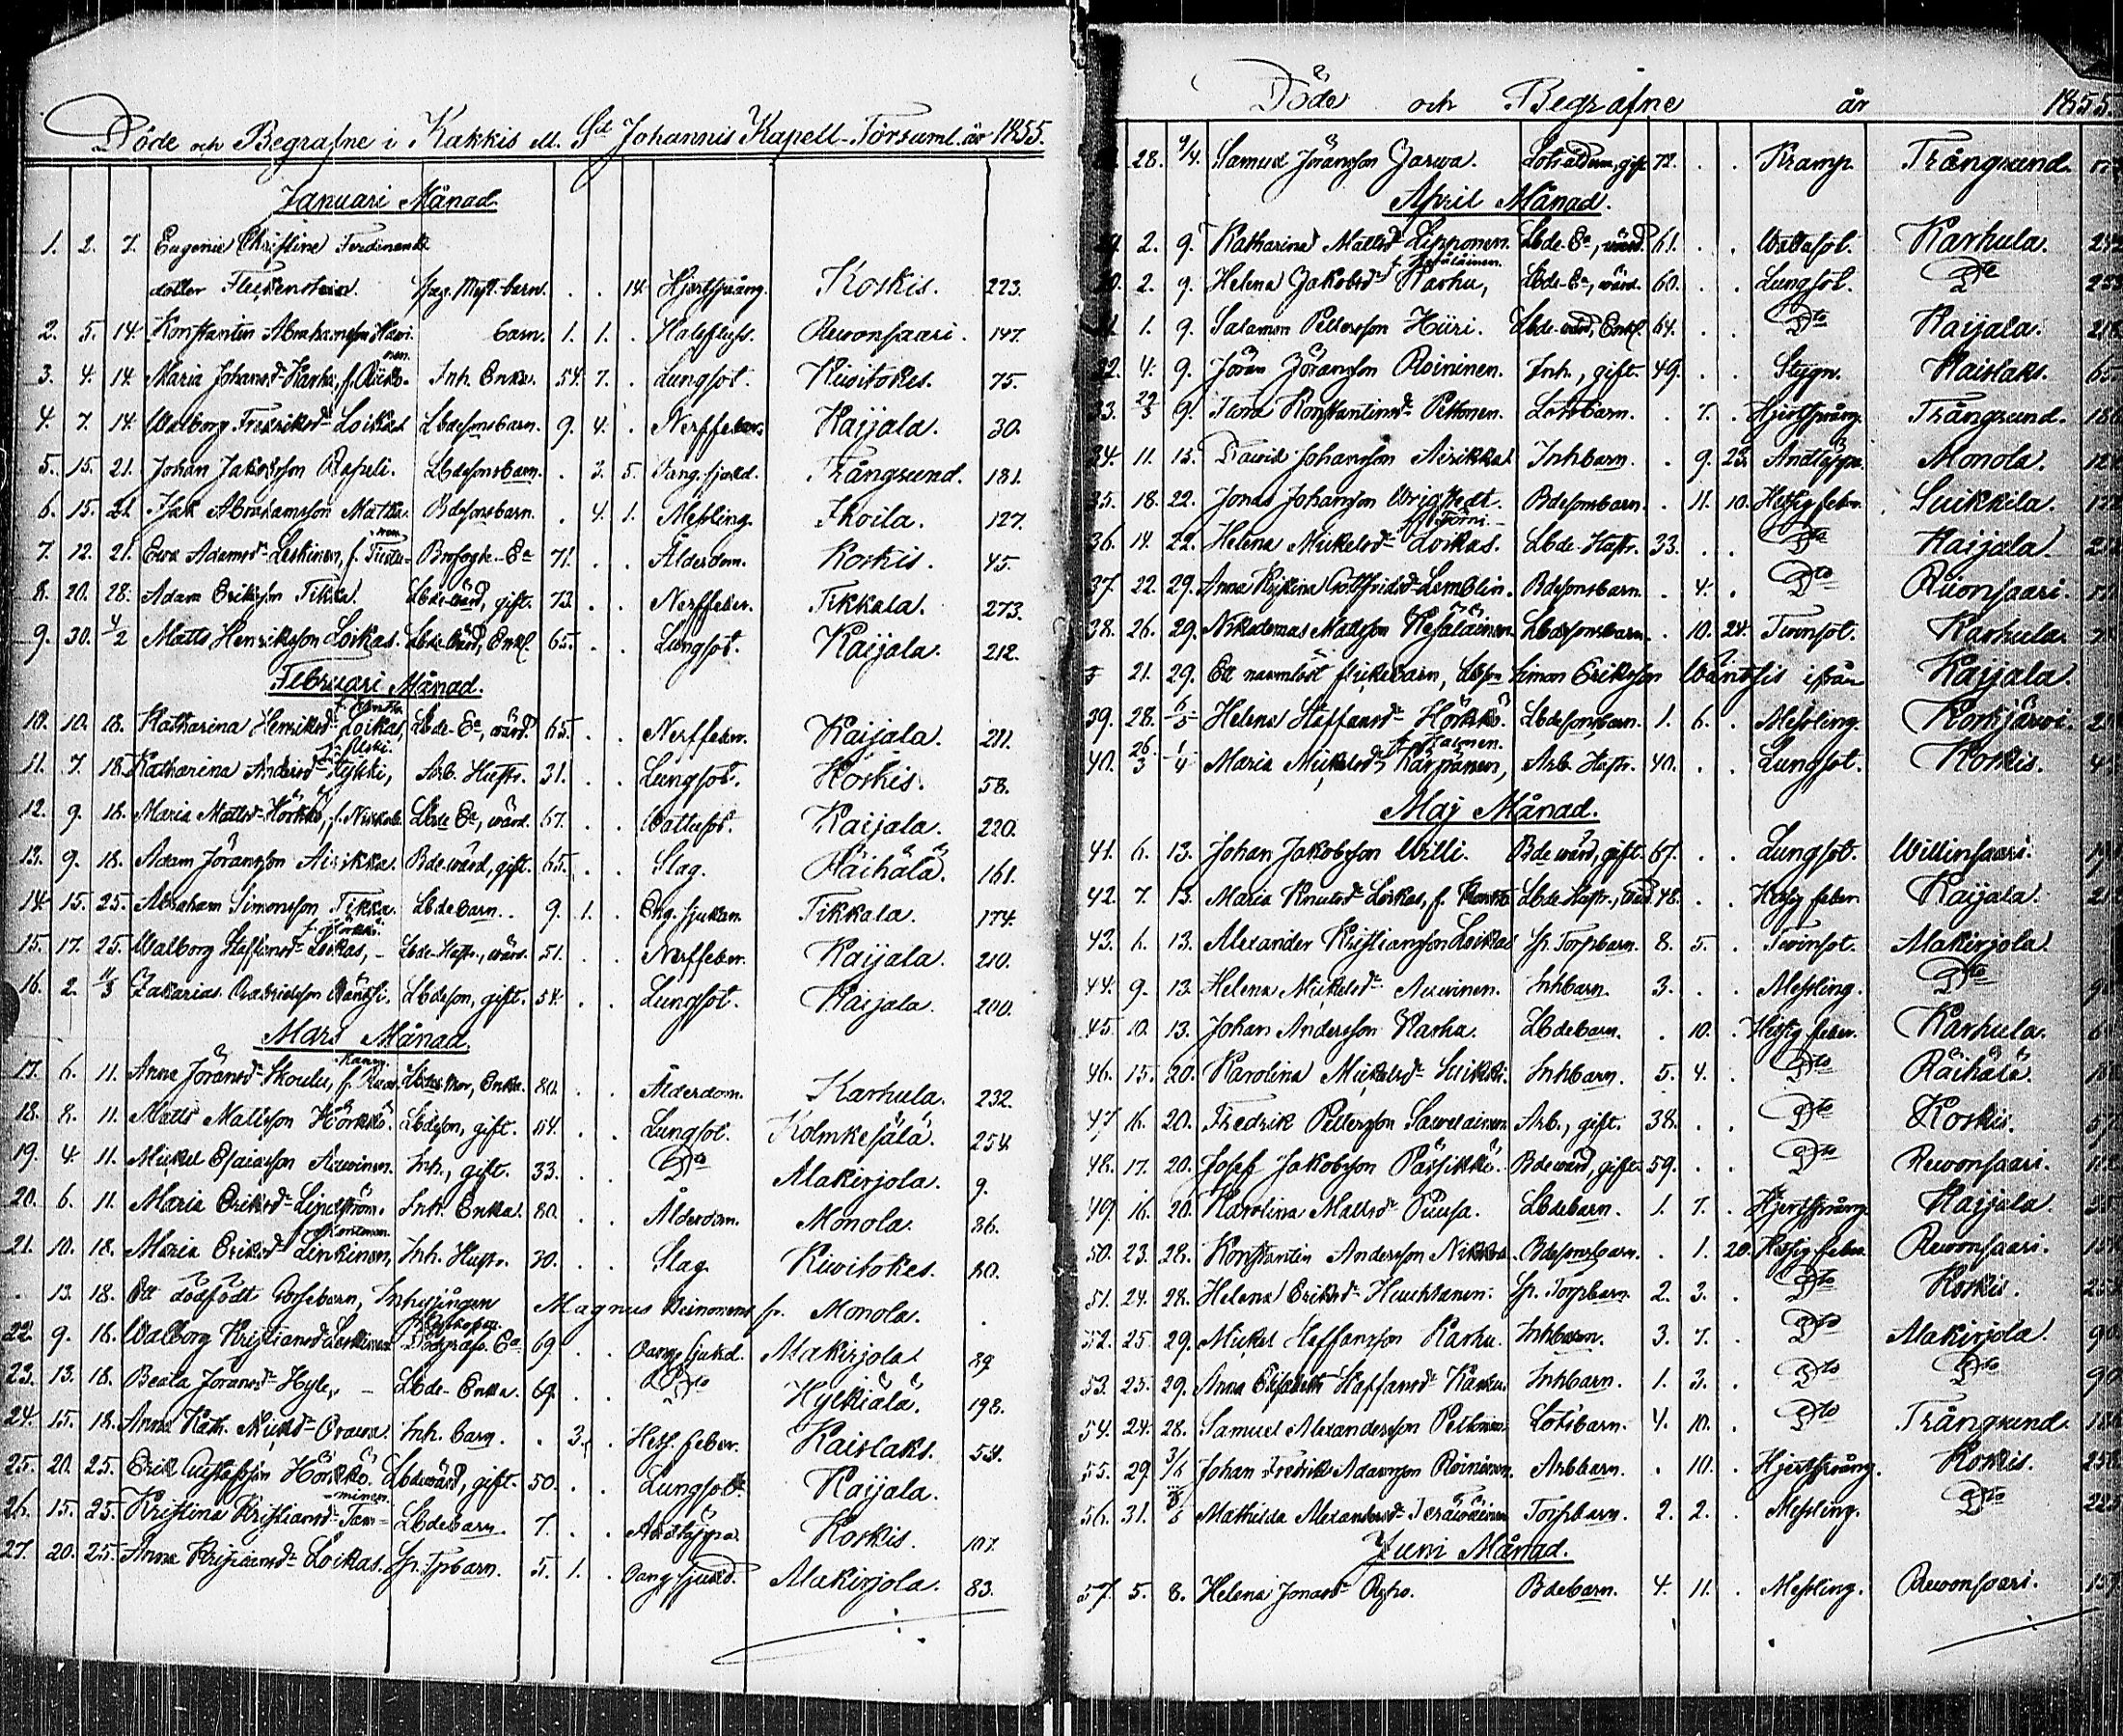 Döde och Begrafne i Kakkis el. St Johannis Kapell-Församl. år 1855.
Januari Månad.
1. 2. 7. Eugenie Christine Ferdinands
dotter Fleckenstein. barn. . . 14. Hjertsprång. Koskis. 223.
2. 5. 14. Konstantin Abrahamsson barn. 1. 1. . Halsfluss. Rewonsaari. 147.
3. 4. 14. Maria Johansd. Karhu, f. Inh. Enka. 54. 7. . Lungsot. Kiwitokes. 75.
4. 7. 14. Walborg Fredriksd. Loikas Lbdesonsbarn. 9. 4. . Nerffeber. Kaijala. 30.
5. 15. 21. Johan Jakobsson Rapuli. Lbdesonsbarn. . 3. 5. Trångsund. 181.
6. 15. 21. Isak Abrahamsson Bdesonsbarn. . 4. 1. Messling. Ihoila. 127.
7. 12. 21. Ewa Adamsd. Leskinen, f. Ea 71. . . Ålderdom. Koskis. 45.
8. 20. 28. Adam Eriksson Tikka. Lbde wärd, gift. 73. . . Nerffeber. Tikkala. 273.
9. 30. 4/2 Matts Henriksson Loikas. Lbde wärd, Enkl. 65. . . Lungsot. Kaijala. 212.
Februari Månad.
10. 10. 18. Katharina Henriksd. Loikas, Lbde-Ea, wärd. 65. . . Nerffeber. Kaijala. 211.
11. 7. 18. Katharina Andersd. Arb. Hustr. 31. . . Lungsot. Koskis. 58.
12. 9. 18. Maria Mattsd. Hörkkö, f. Lbde Ea, wärd. 67. . . Wattusot. Kaijala. 220.
13. 9. 18. Adam Jöransson Airikka. Bde wärd, gift. 65. . . Slag. Räihälä. 161.
14. 15. 25. Abraham Simonsson Tikka. Lbdebarn. 9. 1. . Eng. sjukan. Tikkala. 174.
15. 17. 25. Walborg Staffansd. Loikas, Lbde-Hustr., wärd. 51. . . Nerffeber. Kaijala. 210.
16. 2. 11/3 Zakarias Gabrielsson Wäntsi. Lbdeson, gift. 54. . . Lungsot. Kaijala. 200.
Mars Månad.
17. 6. 11. Anna Jöransd. Skoulu, f. Enka. 80. . . Ålderdom. Karhula. 232.
18. 8. 11. Matts Mattsson Hörkkö. Lbdeson, gift. 54. . . Lungsot. Kolmkesälä. 254.
19. 4. 11. Mickel Esaiasson Auwinen. Inh., gift. 33. . . Dto Makirjola. 9.
20. 6. 11. Maria Eriksd. Lindström. Inh. Enka. 80. . . Ålderdom. Monola. 86.
21. 10. 18. Maria Eriksd. Linkinen, Inh. Hustr. 30. . . Slag. Kiwitokes. 80.
. 13. 18. Ett dödfödt Gossebarn, Magnus Reinonens fr. Monola.
22. 9. 18. Walborg Kristiansd. Leskinen Dödgrafs. Ea 69. . . Makirjola. 89.
23. 13. 18. Beata Jöransd. Hyle, Lbde-Enka. 69. . . Dto Hylkiälä. 198.
24. 15. 18. Anna Kath. Mickd. Orawa. Inh. barn. . 3. . Hets. feber. Kaislaks. 54.
25. 20. 25. Erik Gustafsson Hörkkö. Lbdewärd, gift. 50. . . Lungsot. Kaijala.
26. 15. 25. Kristina Kristiansd. Tamminen. Lbdebarn. 7. . . Andtäppa. Koskis. 107.
27. 20. 25. Anna Kristiansd. Loikas. Tpbarn. 5. 1. . Makirjola. 83.
Döde och Begrafne år 1855.
28. 9/4. Samuel Jöransson Jarwa. gift 72. . . Kramp. Trångsund.
April Månad.
2. 9. Katharina Mattsd. Lipponen. Lbde-Ea, wärd. 61. . . Wattusot. Karhula.
30. 2. 9. Helena Jakobsd. Karhu, f. Kesäläinen. Lbde-Ea, wärd. 60. . . Lungsot. Dto
1. 9. Salamon Pettersson Hiiri. Lbde-wärd, Enkl. 64. . . Dto Kaijala.
32. 4. 9. Jöran Jöransson Roininen. Inh., gift. 49. . . Stygn. Kaislaks.
33. 29/3 9. Konstantinsd. Peltonen. Lotsbarn. . 7. . Hjertsprång. Trångsund.
34. 11. 15. Dawid Johansson Airikka. Inhbarn. . 9. 23. Andtäppa. Monola.
35. 18. 22. Jonas Johansson Wrigstedt. Bdesonsbarn. . 11. 10. Hetsig feber. Suikkila.
36. 14. 22. Helena Mickelsd. Loikas. f. Törni Lbde-Hustr. 33. . . Dto Kaijala.
37. 22. 29. Anna Kristina Gottfridsd. Lemblin. Bdesonsbarn. . 4. . Dto Rewonsaari.
38. 26. 29. Nikodemus Mattsson Kesäläinen Lbdesonsbarn. . 10. 24. Twinsot. Karhula.
21. 29. Ett namnlöst flickebarn, Lbdeson Simon Eriksson Wäntsis ifrån Kaijala
39. 28. 6/5 Helena Staffansd. Hörkkö. Lbdesonsbarn. 1. 6. . Messling. Korkjärwi.
40. 26/3 1/4 Maria Mickelsd. Karpanen, Arb. Hustr. 40. . . Lungsot. Koskis.
Maj Månad.
41. 6. 13. Johan Jakobsson Willi. Bde wärd, gift. 67. . . Lungsot. Willinsaari.
42. 7. 13. Maria Knutsd. Loikas, f. Lbde Hustr., wärd. 48. . . Hetsig feber. Kaijala.
43. 6. 13. Alexander Kristiansson Loikas Torpbarn. 8. 5. . Twinsot. Makirjola.
44. 9. 13. Helena Mickelsd. Auwinen. Inhbarn. 3. . . Messling. Dto
45. 10. 13. Johan Andersson Karhu. Lbdebarn. . 10. . Hetsig feber. Karhula.
46. 15. 20. Karolina Mickelsd. Suikki. Inhbarn. 5. 4. . Dto Räihälä.
47. 16. 20. Fredrik Pettersson Sawelainen Arb., gift. 38. . . Dto Koskis.
48. 17. 20. Josef Jakobsson Pässikki. Bde wärd, gift. 59. . . Dto Rewonsaari.
49. 16. 20. Karolina Mattsd. Puusa. Lbdebarn. 1. 7. . Hjertsprång Kaijala.
50. 23. 28. Konstantin Andersson Nikka. Bdesonsbarn. . 1. 20. Hetsig feber. Rewonsaari.
51. 24. 28. Helena Eriksd. Torpbarn. 2. 3. . Dto Koskis.
52. 25. 29. Mickel Staffansson Karhu. Inhbarn. 3. 7. . Dto Makirjola.
53. 25. 29. Anna Elisabeth Staffansd. Karhu. Inhbarn. 1. 3. . Dto Dto
54. 24. 28. Samuel Alexandersson Peltonen. Lotsbarn. 4. 10. . Dto Trångsund.
55. 29. 3/6 Johan Fredrik Adamsson Roininen. Arbbarn. . 10. . Hjertsprång. Koskis.
56. 31. Mathilda Alexandersd. Teräwäinen Torpbarn. 2. 2. . Messling. Dto
Juni Månad.
57. 5. 8. Helena Jonasd. Bdebarn. 4. 11. . Messling. Rewonsaari.